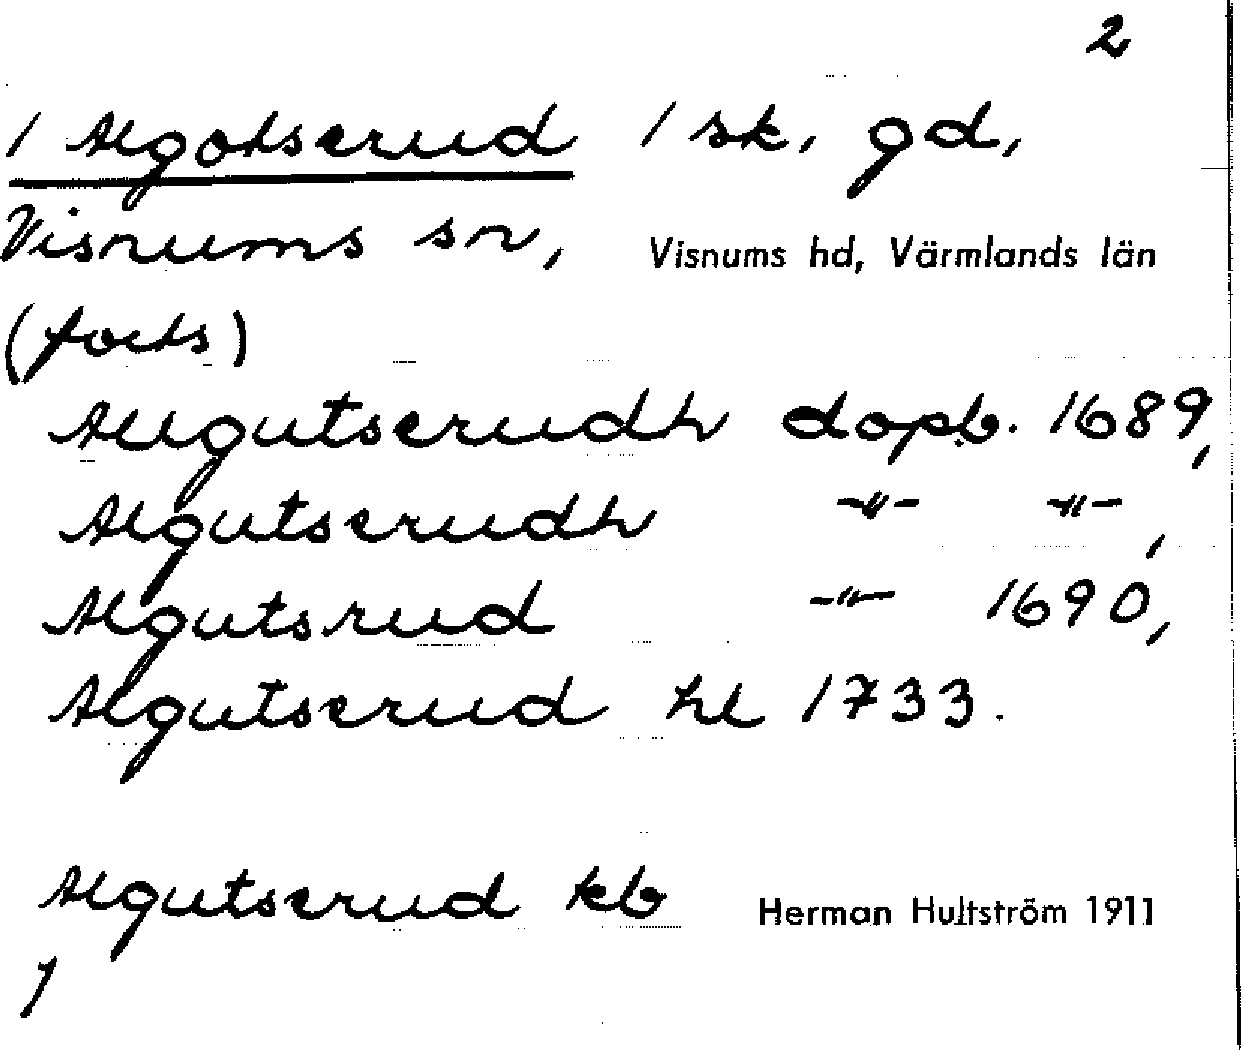 2
/ Algotserud / sk, gd,
Visnums sn, Visnums hd, Värmlands län
(forts)
Allgutserudh dopb. 1689,
Algutserudh -"- -"-,
Algutsrud -"- 1690,
Algutserud hl 1733.
Algutserud kb Herman Hultström 1911